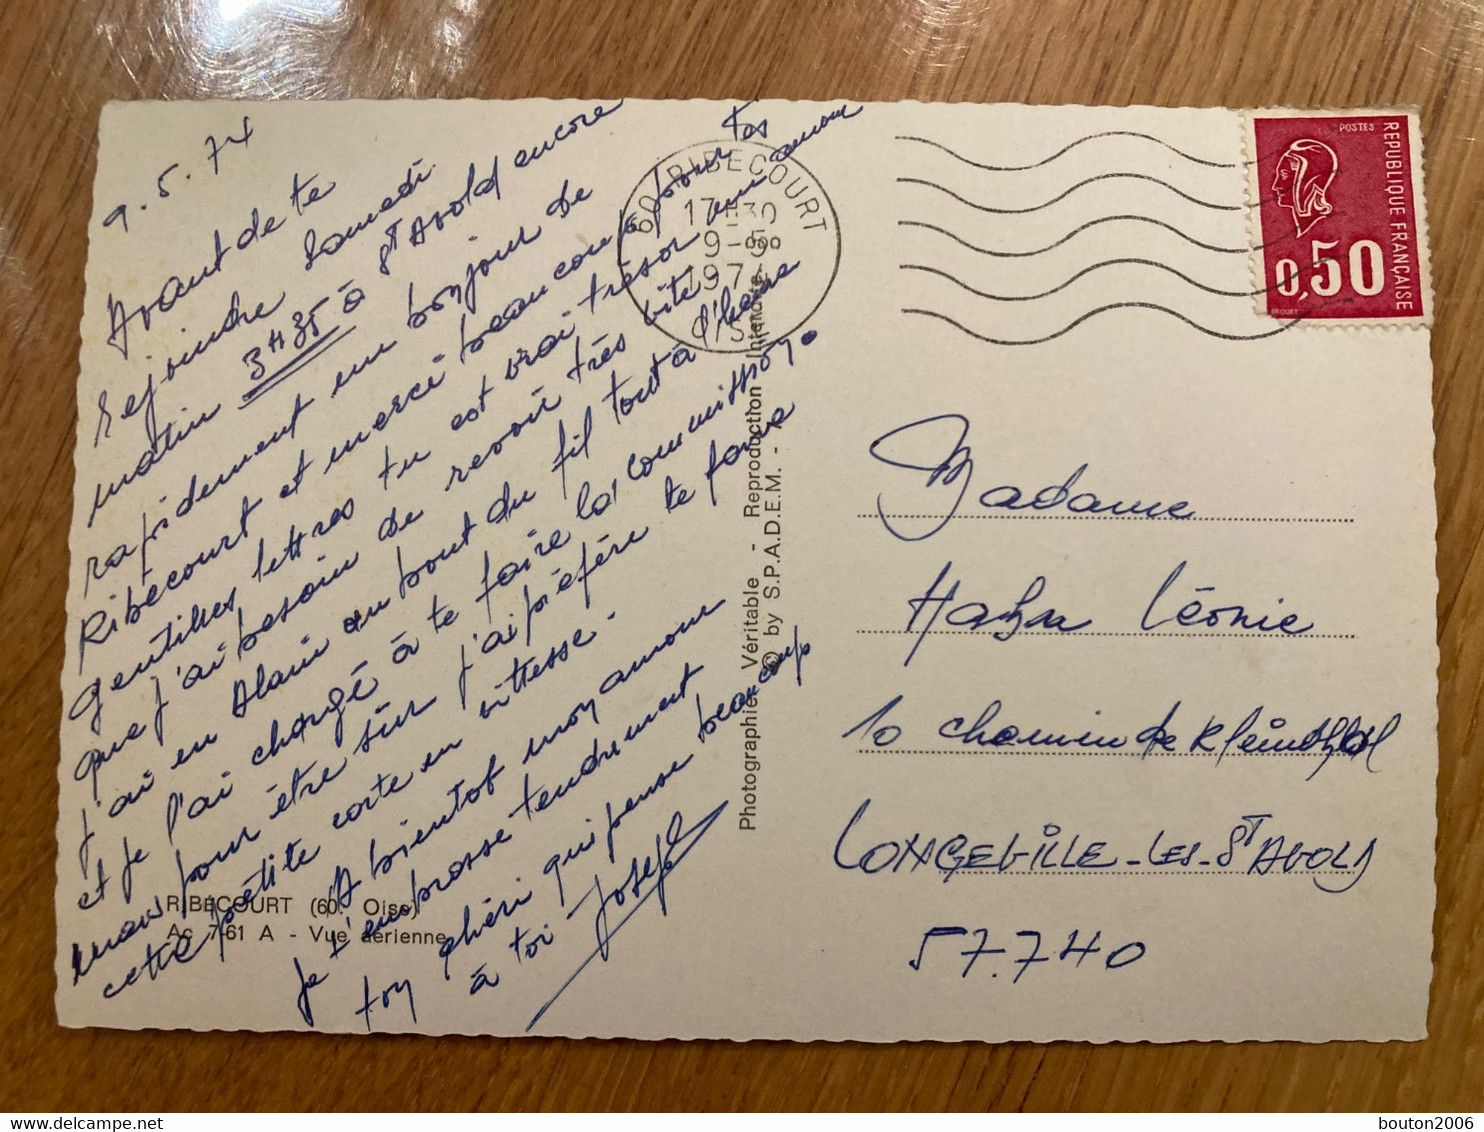 9.5.74
Avant de te
rejoindre Samedi
matin 3H35 à St Avold encore
rapidement un bonjour de
Ribécourt et merci beaucoup pour tes
gentilles lettres tu est vrai trésor mon amour
que j'ai besoin de revoir très vite
j'ai eu Alain au bout du fil tout à l'heure
et je l'ai chargé à te faire la commission.
mais pour être sûr j'ai préfère te faire
cette petite carte en vittesse.
A bientot mon amour
je t'embrasse tendrement
ton chéri qui pense beaucoup
à toi Joseph
RIBÉCOURT (60. Oise)
Ac 7-61 A - Vue aérienne
Photographie Véritable - Reproduction Interdite
© by S.P.A.D.E.M. -
60 RIBECOURT
17 H30
9 - 5
1974
POSTES
REPUBLIQUE FRANÇAISE
0,50
Madame
Hahn Léonie
10 chemin de Kleinthal
LONGEVILLE-LES-ST AVOLD
57.740
bouton2006